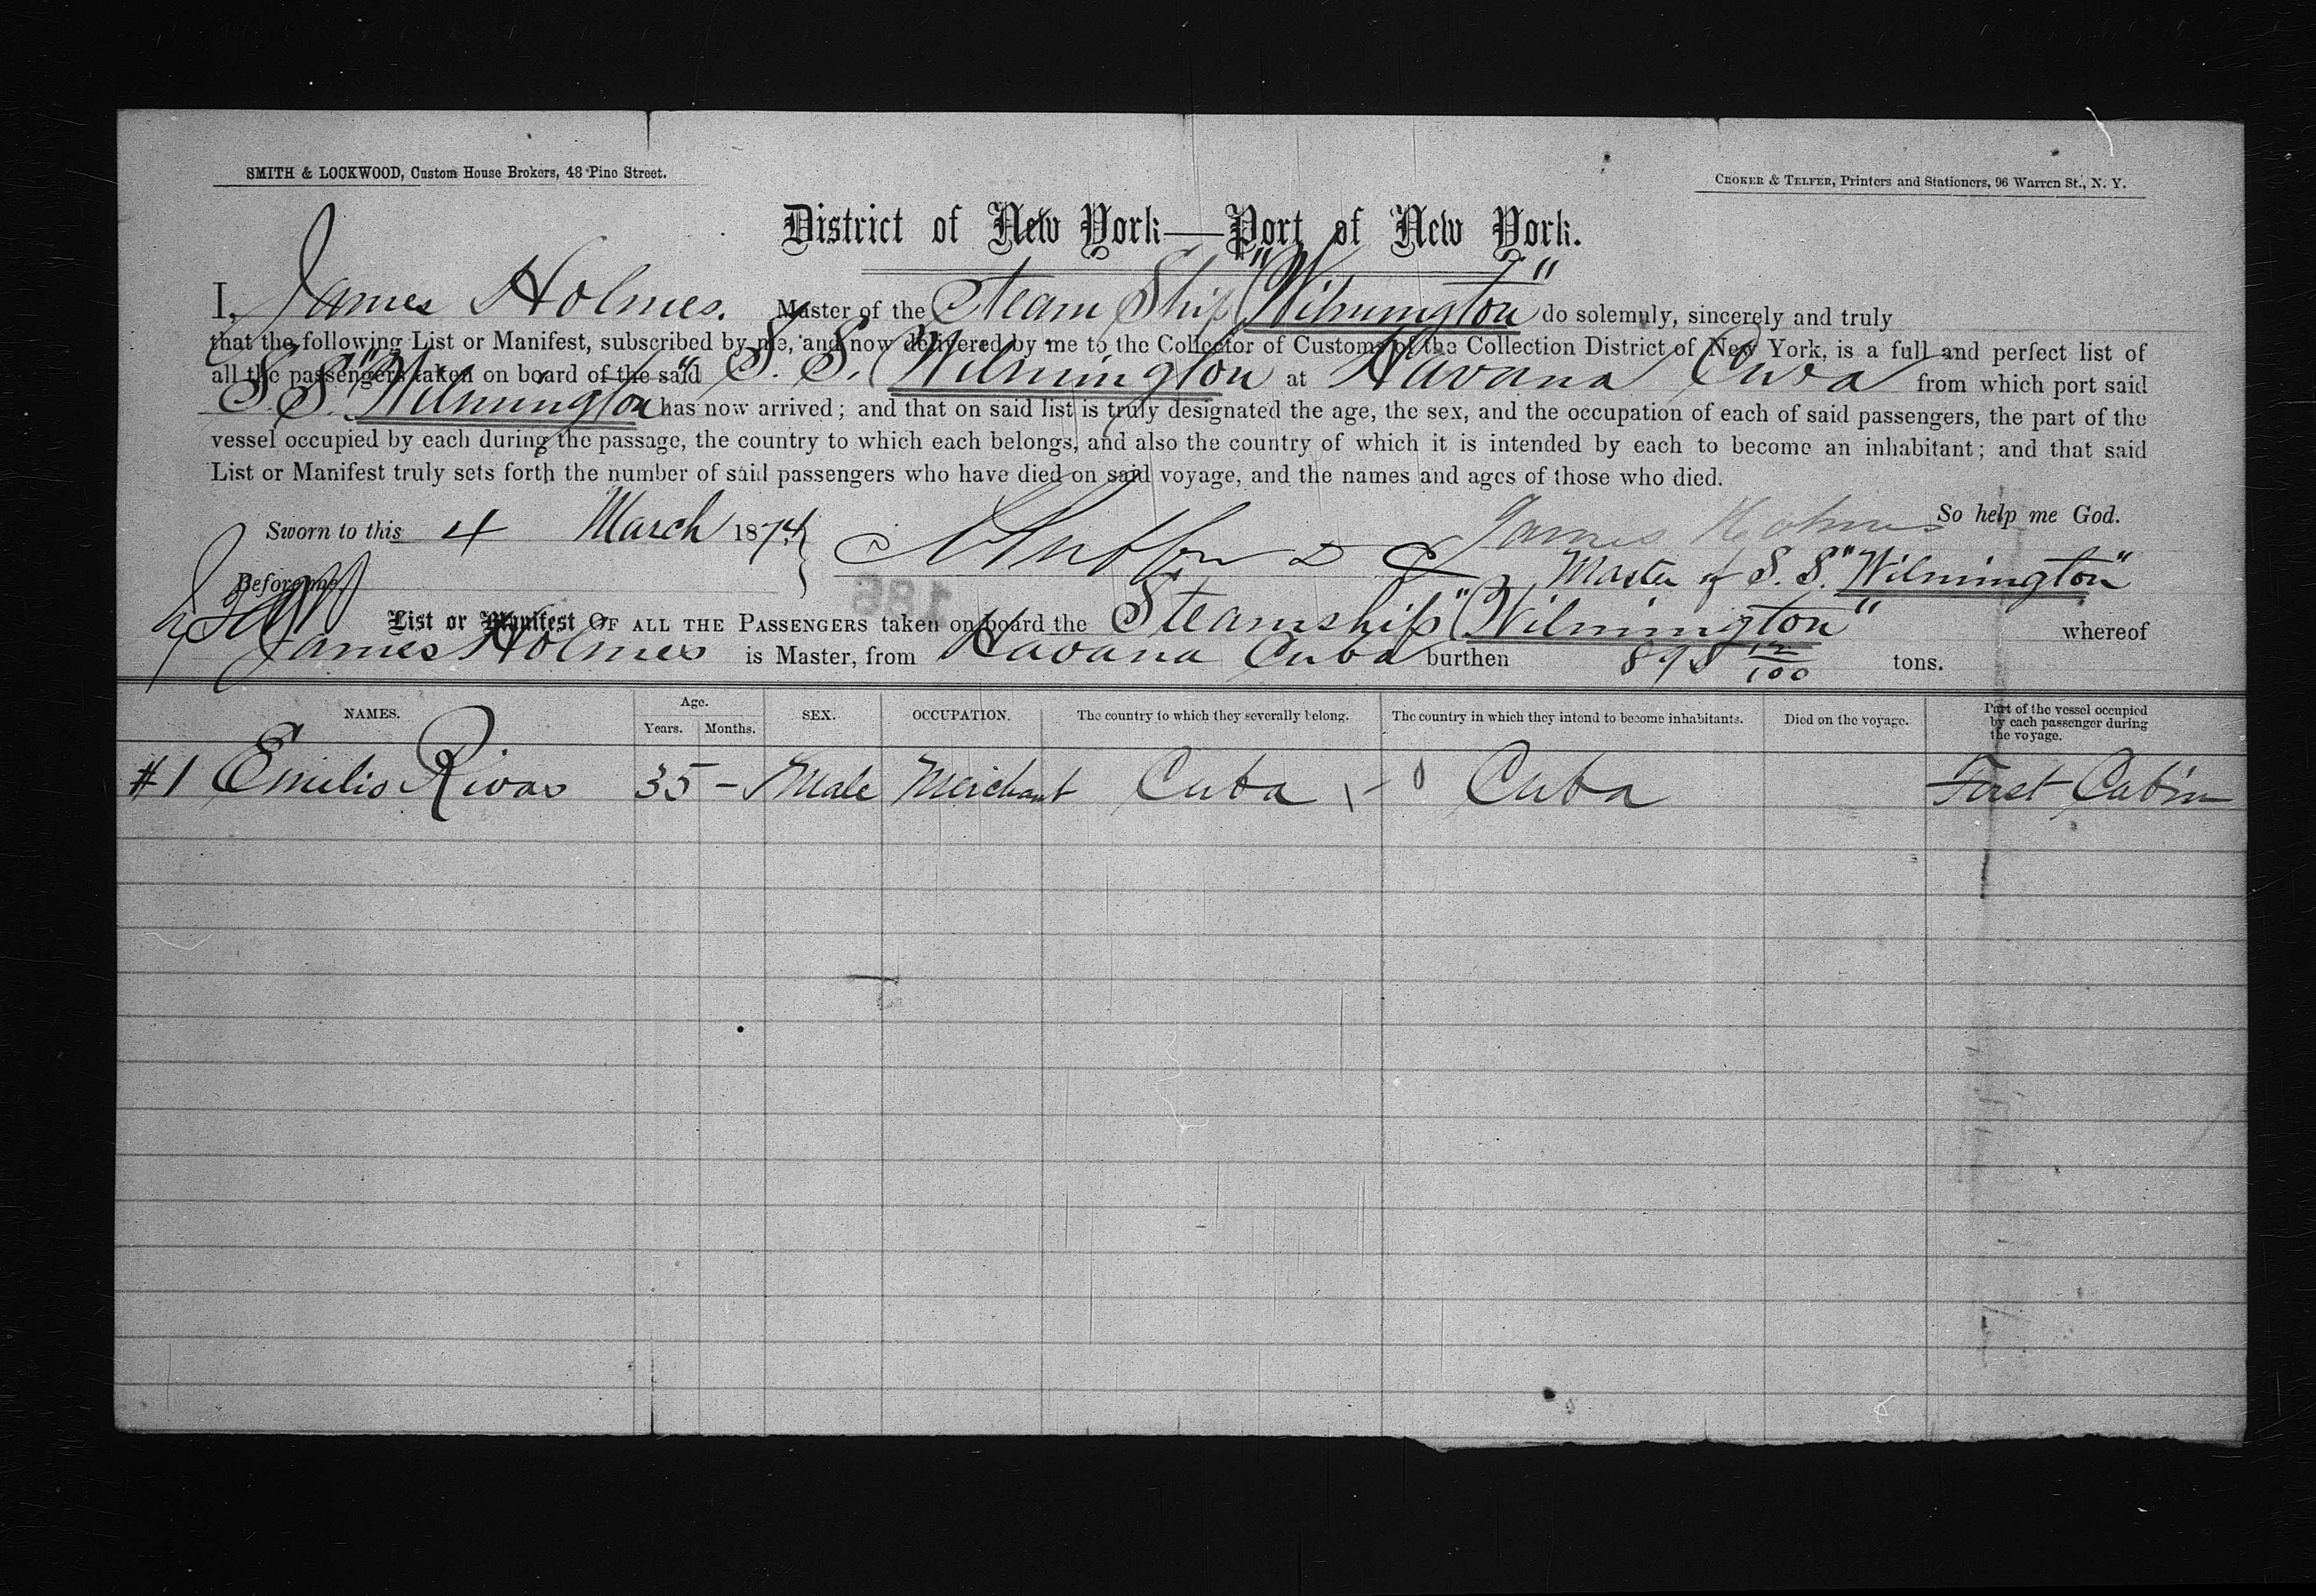 SMITH & LOCKWOOD, Custom House Brokers, 48 Pine Street.
CROKER & TELFER, Printers and Stationers, 96 Warren St., N. Y.
District of New York—Port of New York.
I, James Holmes. Master of the Steam Ship "Wilmington" do solemnly, sincerely and truly
that the following List or Manifest, subscribed by me, and now delivered by me to the Collector of Customs of the Collection District of New York, is a full and perfect list of
all the passengers taken on board of the said S. S. "Wilmington" at Havana Cuba from which port said
S. S. "Wilmington" has now arrived; and that on said list is truly designated the age, the sex, and the occupation of each of said passengers, the part of the
vessel occupied by each during the passage, the country to which each belongs, and also the country of which it is intended by each to become an inhabitant; and that said
List or Manifest truly sets forth the number of said passengers who have died on said voyage, and the names and ages of those who died.
So help me God.
Sworn to this 4 March 1874
James Holmes
Before me
Master of S. S. "Wilmington"
186
List or Manifest OF ALL THE PASSENGERS taken on board the Steamship "Wilmington" whereof
James Holmes is Master, from Havana Cuba burthen 898 12/100 tons.
NAMES. Age. Years. Months. SEX. OCCUPATION. The country to which they severally belong. The country in which they intend to become inhabitants. Died on the voyage. Part of the vessel occupied by each passenger during the voyage.
#1 Emilio Rivas 35 - Male Merchant Cuba Cuba First Cabin